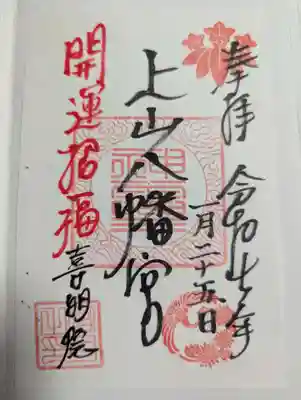 奉拝 令和七年
一月二十五日
上山八幡宮
開運招福
喜明院